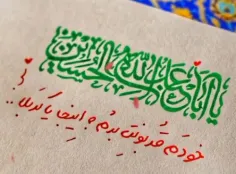 یا اباعبدالله الحسین
خودم قربونت برم، اینجا یا کربلا...